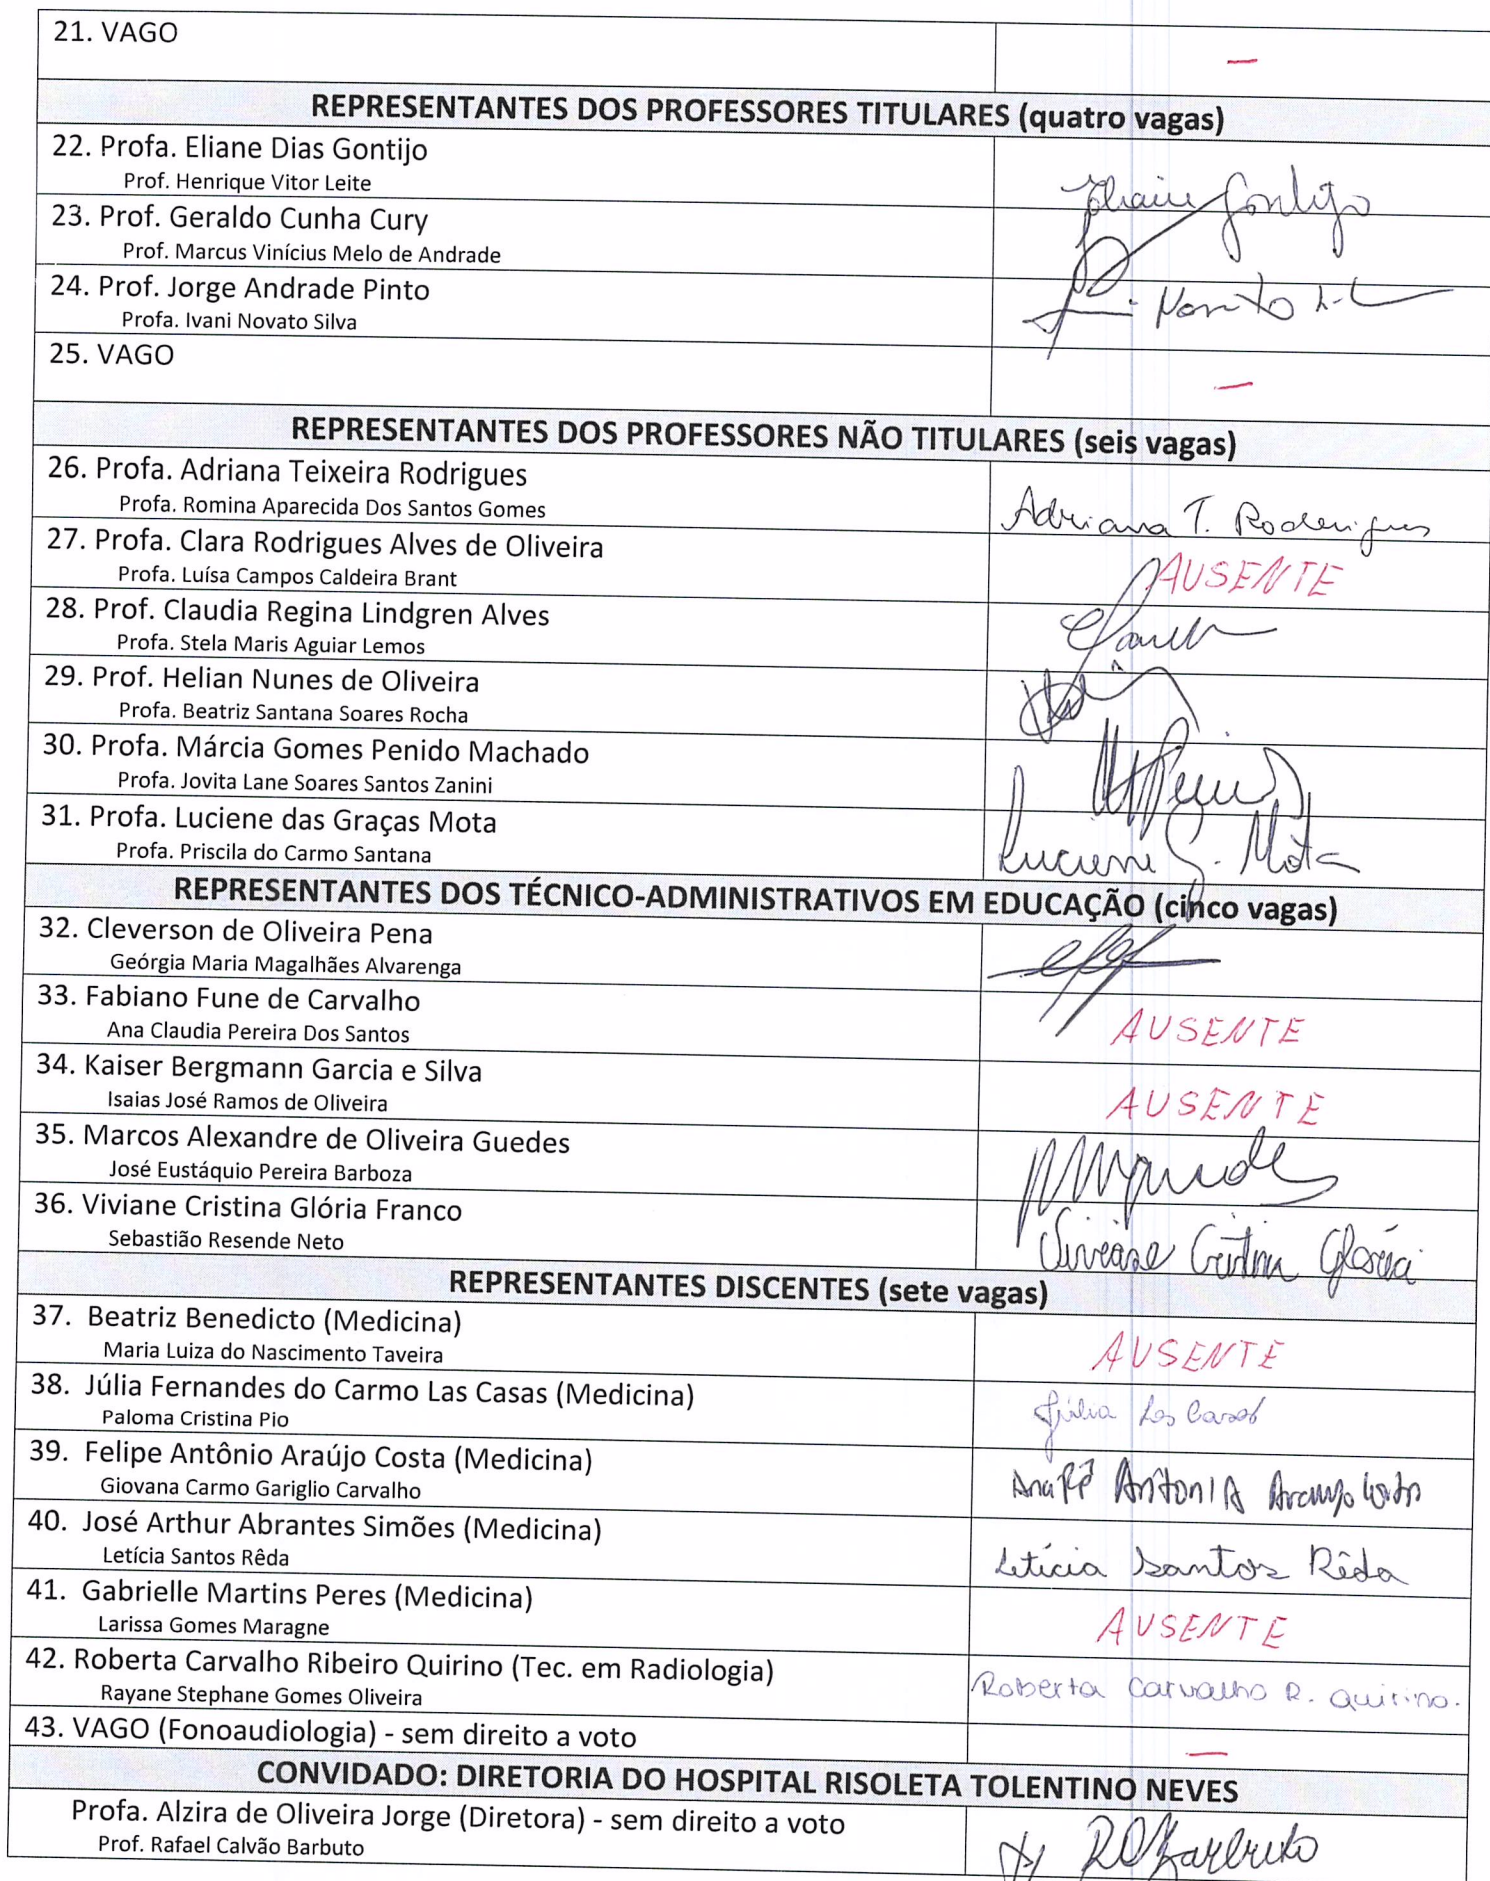 21. VAGO
—
REPRESENTANTES DOS PROFESSORES TITULARES (quatro vagas)
22. Profa. Eliane Dias Gontijo
Prof. Henrique Vitor Leite
Eliane Gontijo
23. Prof. Geraldo Cunha Cury
Prof. Marcus Vinícius Melo de Andrade
24. Prof. Jorge Andrade Pinto
Profa. Ivani Novato Silva
25. VAGO
—
REPRESENTANTES DOS PROFESSORES NÃO TITULARES (seis vagas)
26. Profa. Adriana Teixeira Rodrigues
Profa. Romina Aparecida Dos Santos Gomes
Adriana T. Rodrigues
27. Profa. Clara Rodrigues Alves de Oliveira
Profa. Luísa Campos Caldeira Brant
AUSENTE
28. Prof. Claudia Regina Lindgren Alves
Profa. Stela Maris Aguiar Lemos
29. Prof. Helian Nunes de Oliveira
Profa. Beatriz Santana Soares Rocha
30. Profa. Márcia Gomes Penido Machado
Profa. Jovita Lane Soares Santos Zanini
31. Profa. Luciene das Graças Mota
Profa. Priscila do Carmo Santana
Luciene G. Mota
REPRESENTANTES DOS TÉCNICO-ADMINISTRATIVOS EM EDUCAÇÃO (cinco vagas)
32. Cleverson de Oliveira Pena
Geórgia Maria Magalhães Alvarenga
33. Fabiano Fune de Carvalho
Ana Claudia Pereira Dos Santos
AUSENTE
34. Kaiser Bergmann Garcia e Silva
Isaias José Ramos de Oliveira
AUSENTE
35. Marcos Alexandre de Oliveira Guedes
José Eustáquio Pereira Barboza
36. Viviane Cristina Glória Franco
Sebastião Resende Neto
Viviane Cristina Glória
REPRESENTANTES DISCENTES (sete vagas)
37. Beatriz Benedicto (Medicina)
Maria Luiza do Nascimento Taveira
AUSENTE
38. Júlia Fernandes do Carmo Las Casas (Medicina)
Paloma Cristina Pio
Júlia Las Casas
39. Felipe Antônio Araújo Costa (Medicina)
Giovana Carmo Gariglio Carvalho
40. José Arthur Abrantes Simões (Medicina)
Letícia Santos Rêda
Letícia Santos Rêda
41. Gabrielle Martins Peres (Medicina)
Larissa Gomes Maragne
AUSENTE
42. Roberta Carvalho Ribeiro Quirino (Tec. em Radiologia)
Rayane Stephane Gomes Oliveira
Roberta Carvalho R. Quirino.
43. VAGO (Fonoaudiologia) - sem direito a voto
—
CONVIDADO: DIRETORIA DO HOSPITAL RISOLETA TOLENTINO NEVES
Profa. Alzira de Oliveira Jorge (Diretora) - sem direito a voto
Prof. Rafael Calvão Barbuto